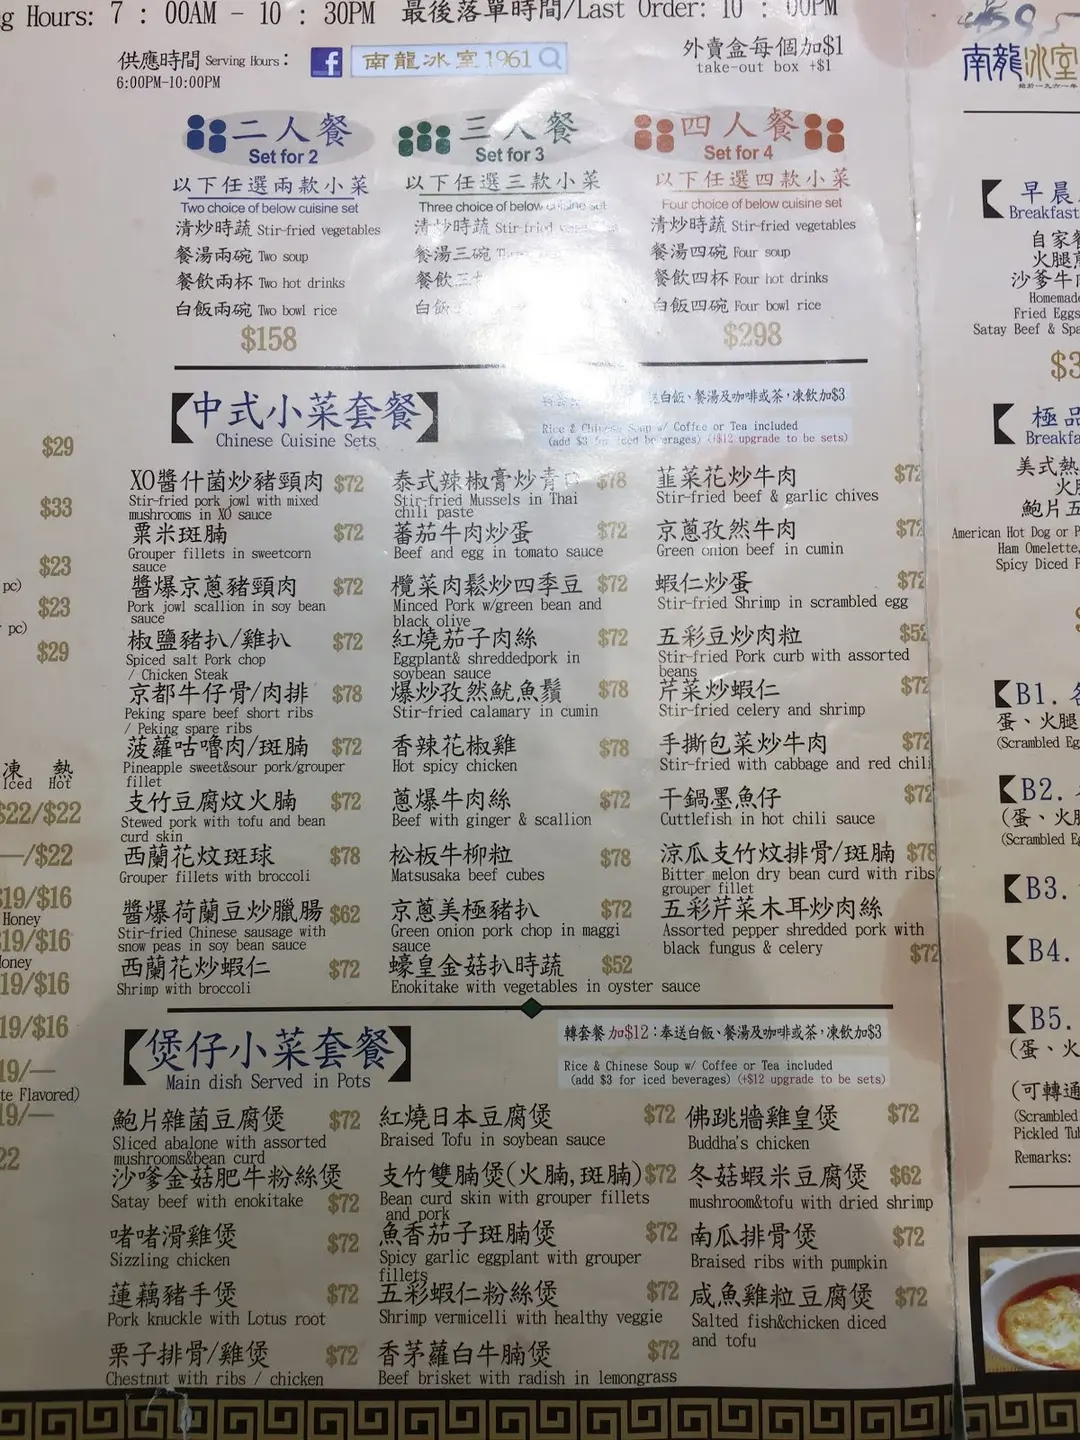 g Hours: 7 : 00AM - 10 : 30PM 最後落單時間/Last Order: 10 : 00PM
供應時間 Serving Hours:
6:00PM-10:00PM
南龍冰室1961
外賣盒每個加$1
take-out box +$1
二人餐
Set for 2
以下任選兩款小菜
Two choice of below cuisine set
清炒時蔬 Stir-fried vegetables
餐湯兩碗 Two soup
餐飲兩杯 Two hot drinks
白飯兩碗 Two bowl rice
$158
三人餐
Set for 3
以下任選三款小菜
Three choice of below cuisine set
清炒時蔬 Stir-fried
餐湯三碗
餐飲三
白飯
四人餐
Set for 4
以下任選四款小菜
Four choice of below cuisine set
清炒時蔬 Stir-fried vegetables
餐湯四碗 Four soup
餐飲四杯 Four hot drinks
白飯四碗 Four bowl rice
$298
中式小菜套餐
Chinese Cuisine Sets
白飯、餐湯及咖啡或茶,凍飲加$3
Rice & Chinese Soup w/ Coffee or Tea included
(add $3 for iced beverages) (+$12 upgrade to be sets)
XO醬什菌炒豬頸肉 $72
Stir-fried pork jowl with mixed
mushrooms in XO sauce
粟米斑腩 $72
Grouper fillets in sweetcorn
sauce
醬爆京蔥豬頸肉 $72
Pork jowl scallion in soy bean
sauce
椒鹽豬扒/雞扒 $72
Spiced salt Pork chop
/ Chicken Steak
京都牛仔骨/肉排 $78
Peking spare beef short ribs
/ Peking spare ribs
菠蘿咕嚕肉/斑腩 $72
Pineapple sweet&sour pork/grouper
fillet
支竹豆腐炆火腩 $72
Stewed pork with tofu and bean
curd skin
西蘭花炆斑球 $78
Grouper fillets with broccoli
醬爆荷蘭豆炒臘腸 $62
Stir-fried Chinese sausage with
snow peas in soy bean sauce
西蘭花炒蝦仁 $72
Shrimp with broccoli
泰式辣椒膏炒青口 $78
Stir-fried Mussels in Thai
chili paste
蕃茄牛肉炒蛋 $72
Beef and egg in tomato sauce
欖菜肉鬆炒四季豆 $72
Minced Pork w/green bean and
black olive
紅燒茄子肉絲 $72
Eggplant& shreddedpork in
soybean sauce
爆炒孜然魷魚鬚 $78
Stir-fried calamary in cumin
香辣花椒雞 $78
Hot spicy chicken
蔥爆牛肉絲 $72
Beef with ginger & scallion
松板牛柳粒 $78
Matsusaka beef cubes
京蔥美極豬扒 $72
Green onion pork chop in maggi
sauce
蠔皇金菇扒時蔬 $52
Enokitake with vegetables in oyster sauce
韮菜花炒牛肉 $72
Stir-fried beef & garlic chives
京蔥孜然牛肉 $72
Green onion beef in cumin
蝦仁炒蛋 $72
Stir-fried Shrimp in scrambled egg
五彩豆炒肉粒 $52
Stir-fried Pork curb with assorted
beans
芹菜炒蝦仁 $72
Stir-fried celery and shrimp
手撕包菜炒牛肉 $72
Stir-fried with cabbage and red chili
干鍋墨魚仔 $72
Cuttlefish in hot chili sauce
涼瓜支竹炆排骨/斑腩 $78
Bitter melon dry bean curd with ribs/
grouper fillet
五彩芹菜木耳炒肉絲
Assorted pepper shredded pork with
black fungus & celery $72
煲仔小菜套餐
Main dish Served in Pots
轉套餐加$12:奉送白飯、餐湯及咖啡或茶,凍飲加$3
Rice & Chinese Soup w/ Coffee or Tea included
(add $3 for iced beverages) (+$12 upgrade to be sets)
鮑片雜菌豆腐煲 $72
Sliced abalone with assorted
mushrooms&bean curd
沙嗲金菇肥牛粉絲煲
Satay beef with enokitake $72
啫啫滑雞煲 $72
Sizzling chicken
蓮藕豬手煲 $72
Pork knuckle with Lotus root
栗子排骨/雞煲 $72
Chestnut with ribs / chicken
紅燒日本豆腐煲 $72
Braised Tofu in soybean sauce
支竹雙腩煲(火腩,斑腩) $72
Bean curd skin with grouper fillets
and pork
魚香茄子斑腩煲 $72
Spicy garlic eggplant with grouper
fillets
五彩蝦仁粉絲煲 $72
Shrimp vermicelli with healthy veggie
香茅蘿白牛腩煲 $72
Beef brisket with radish in lemongrass
佛跳牆雞皇煲 $72
Buddha's chicken
冬菇蝦米豆腐煲 $62
mushroom&tofu with dried shrimp
南瓜排骨煲 $72
Braised ribs with pumpkin
咸魚雞粒豆腐煲 $72
Salted fish&chicken diced
and tofu
$29
$33
$23
pc)
$23
pc)
$29
凍 熱
Iced Hot
$22/$22
—/$22
$19/$16
Honey
$19/$16
Honey
19/$16
19/$16
19/—
te Flavored)
19/—
22
南龍冰室
早晨
Breakfast
自家
火腿
沙爹牛
Homemade
Fried Eggs
Satay Beef & Spa
$3
極品
Breakfa
美式熱
火
鮑片五
American Hot Dog or P
Ham Omelette,
Spicy Diced P
B1.
蛋、火腿
(Scrambled Eg
B2.
(蛋、火
(Scrambled Eg
B3.
B4.
B5.
(蛋、火
(可轉通
(Scrambled
Pickled Tu
Remarks: